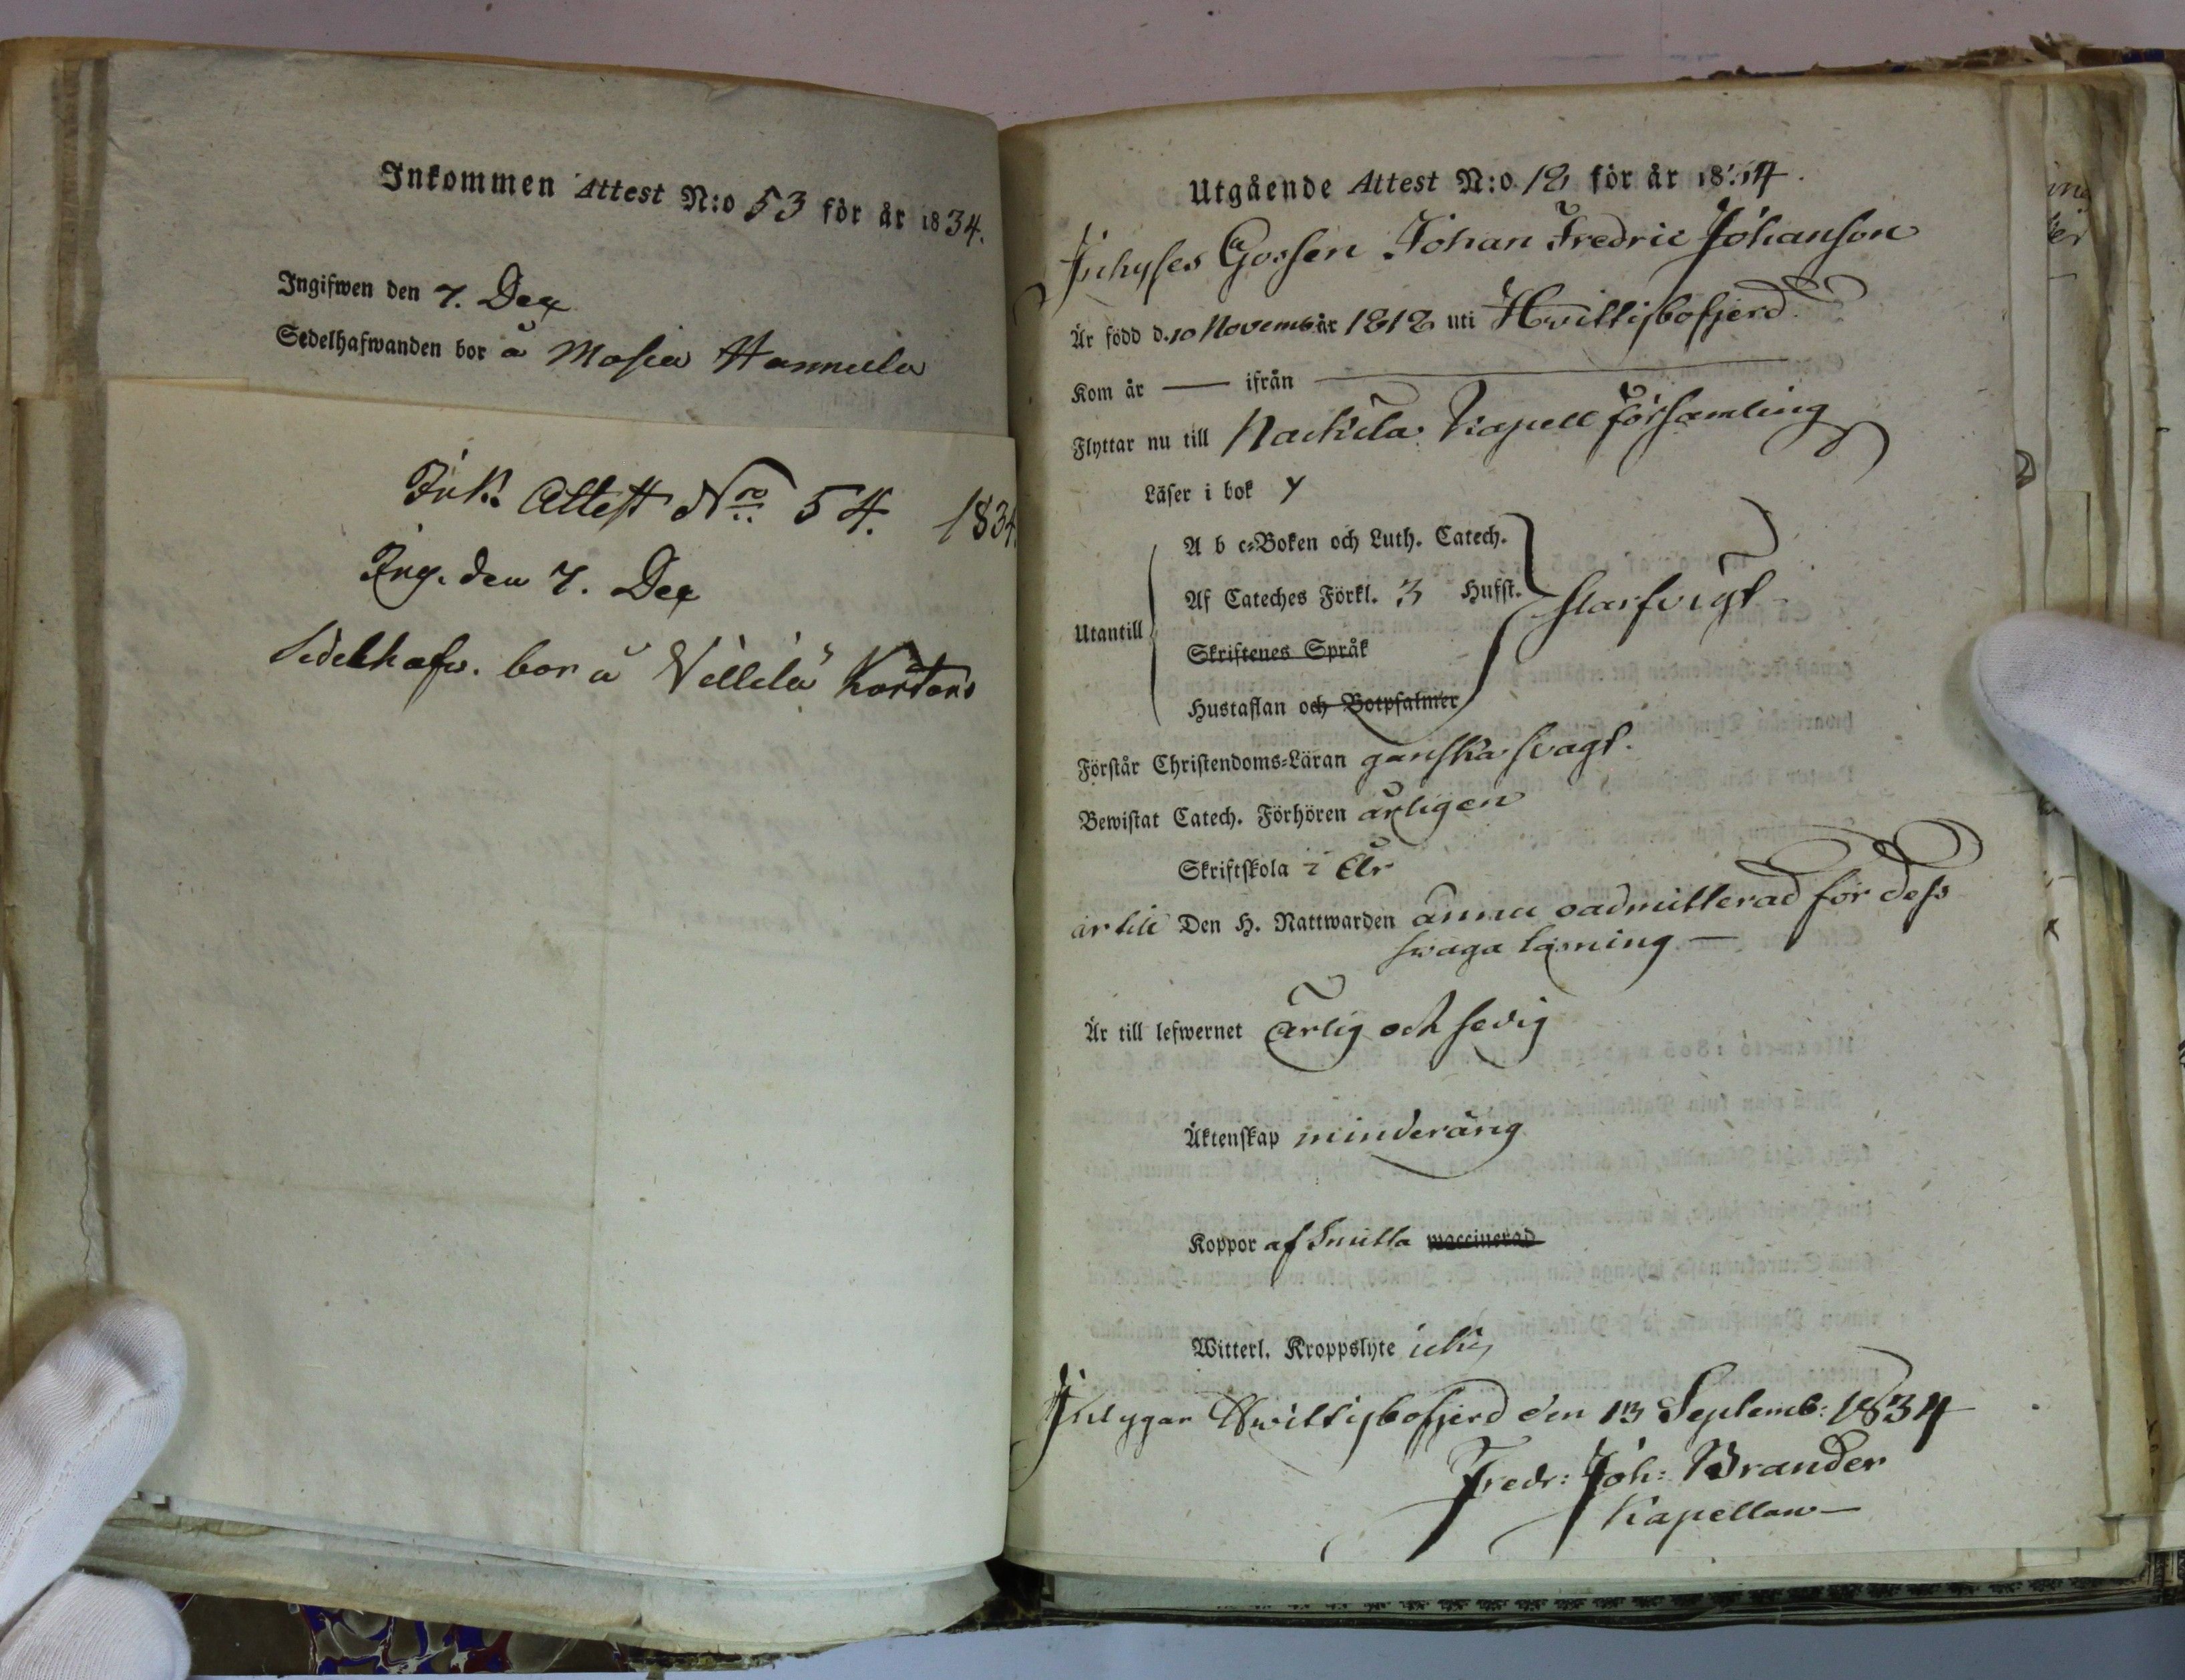 Inkommen Attest N:o 53 för år 1834.
Ingifwen den 7. Dec
Sedelhafwanden bor å Masia Hannula
Ink. Attest Nro 54. 1834.
Ing. den 7. Dec
Sedelhafw. bor å Villilä Kortens
Utgående Attest N:o 12 för år 1834.
Inhyses Gossen Johan Fredric Johanson
Är född d. 10 Novemb: år 1812 uti Hvittisbofjerd
Kom år — ifrån —
Flyttar nu till Nackila Kapell församling
Läser i bok
A b c-Boken och Luth. Catech.
Af Cateches Förkl. 3 Hufst.
Utantill
Skriftenes Språk
Hustaflan och Botpsalmer
Förstår Christendoms-Läran ganska svagt.
Bewistat Catech. Förhören årligen
Skriftskola i År
är till Den H. Nattwarden ännu oadmitterad för dess
svaga läsning —
Är till lefwernet ärlig och sedig
Äktenskap minderårig
Koppor af Smitta waccinerad
Witterl. Kroppslyte icke
Intygar Hwittisbofjerd den 13 Septemb: 1834
Fredr: Joh: Brander
Kapellan —